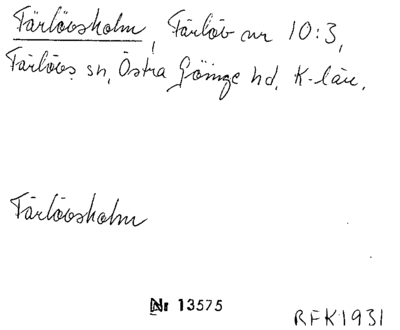 Färlövsholm, Färlöv nr 10:3,
Färlövs sn, Östra Göinge hd, K-län.
Färlövsholm
Nr 13575
RFK1931